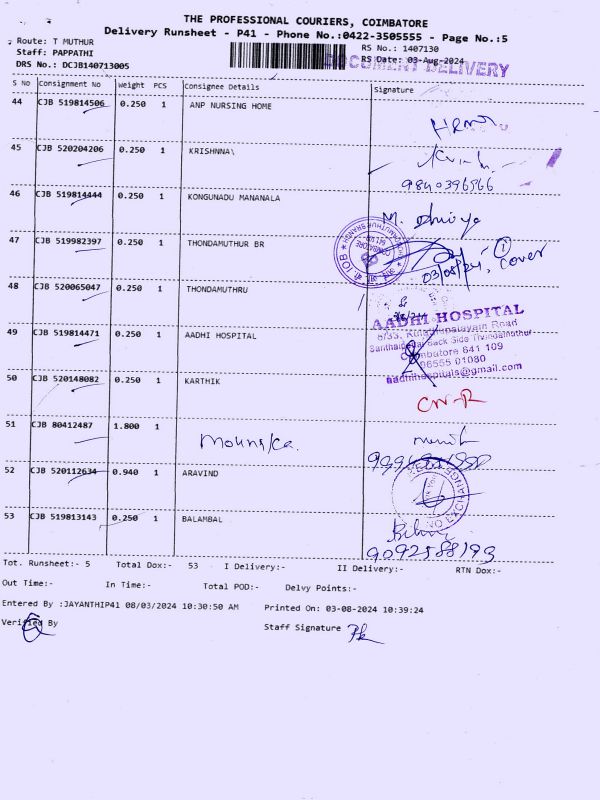 THE PROFESSIONAL COURIERS, COIMBATORE
Delivery Runsheet - P41 - Phone No.:0422-3505555 - Page No.:5
Route: T MUTHUR
RS No.: 1407130
Staff: PAPPATHI
RS Date: 03-Aug-2024
DOCUMENT DELIVERY
DRS No.: DCJB140713005
S No Consignment No Weight PCS Consignee Details Signature
44 CJB 519814506 0.250 1 ANP NURSING HOME
45 CJB 520204206 0.250 1 KRISHNNA\
9840396566
46 CJB 519814444 0.250 1 KONGUNADU MANANALA
M. Dhivya
47 CJB 519982397 0.250 1 THONDAMUTHUR BR
03/08/24, cover
48 CJB 520065047 0.250 1 THONDAMUTHRU
AADHI HOSPITAL
49 CJB 519814471 0.250 1 AADHI HOSPITAL
Coimbatore 641 109
06555 01080
aadhihospitals@gmail.com
50 CJB 520148082 0.250 1 KARTHIK
51 CJB 80412487 1.800 1
52 CJB 520112634 0.940 1 ARAVIND
53 CJB 519813143 0.250 1 BALAMBAL
Tot. Runsheet:- 5 Total Dox:- 53 I Delivery:- II Delivery:- RTN Dox:-
Out Time:- In Time:- Total POD:- Delvy Points:-
Entered By :JAYANTHIP41 08/03/2024 10:30:50 AM Printed On: 03-08-2024 10:39:24
Verified By
Staff Signature